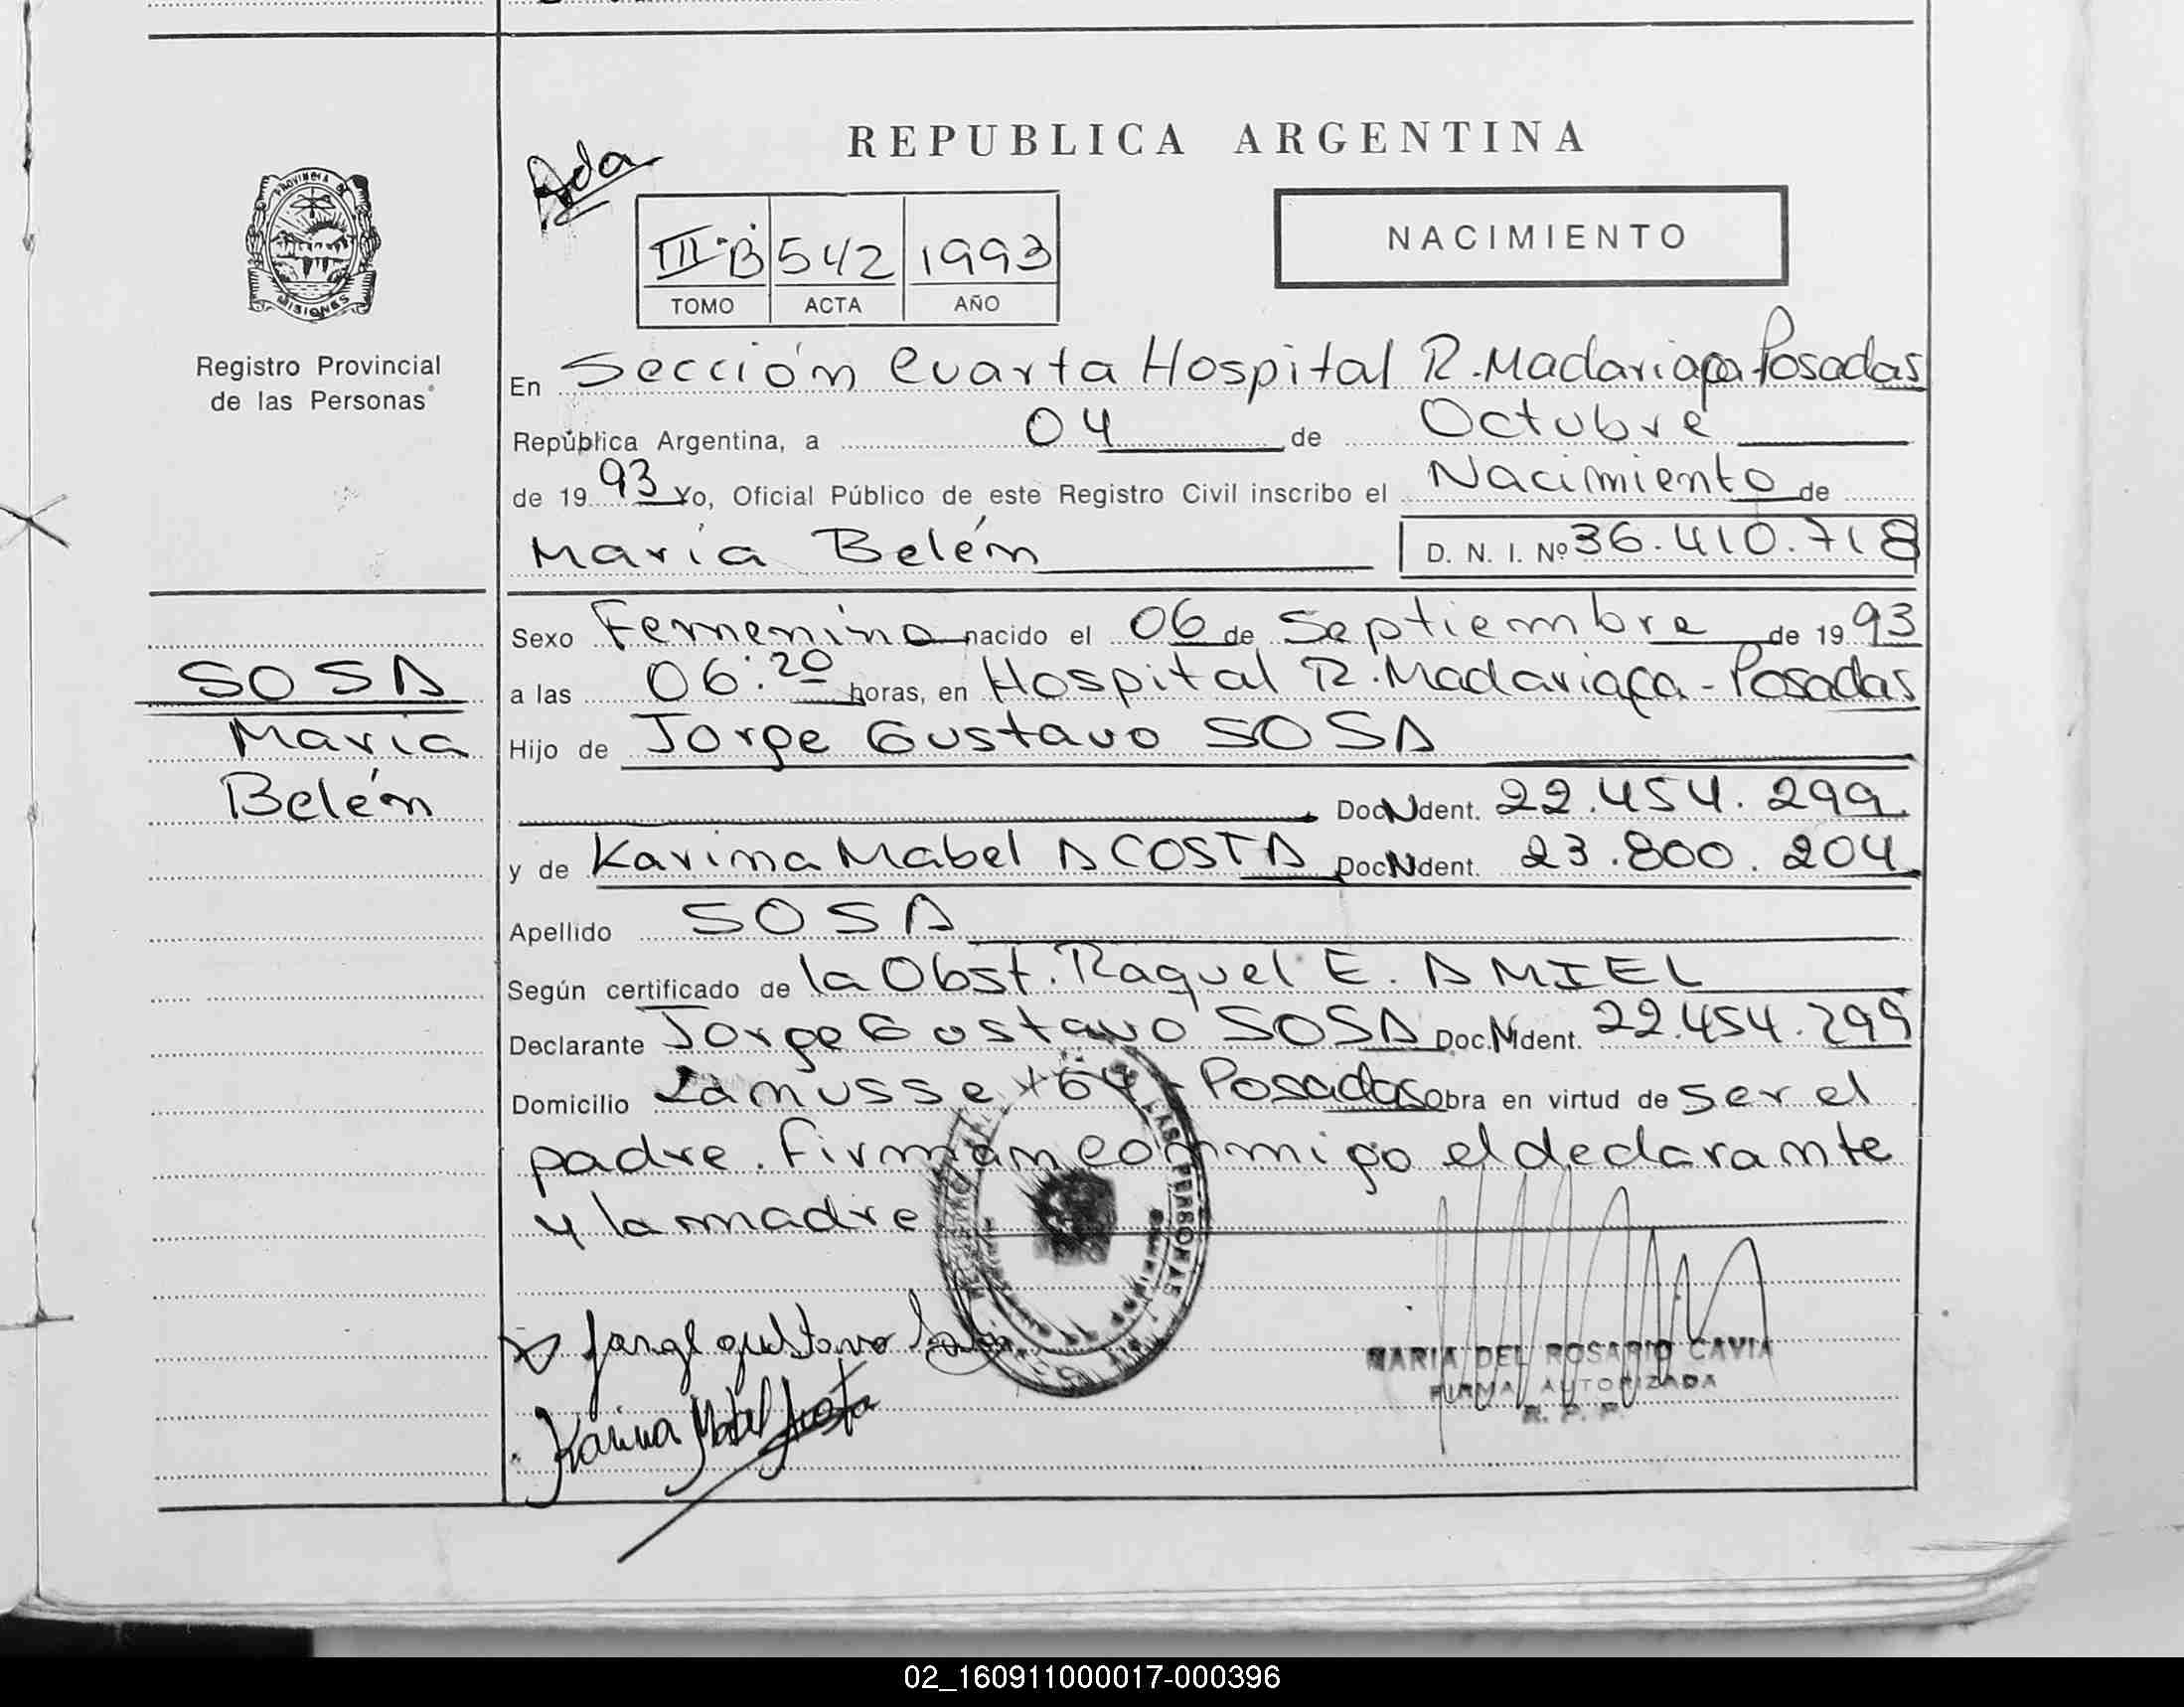 REPUBLICA ARGENTINA
Ada
NACIMIENTO
III-B 542 1993
TOMO ACTA AÑO
PROVINCIA DE
MISIONES
Registro Provincial
de las Personas
En Sección Cuarta Hospital R. Madariaga-Posadas
República Argentina, a 04 de Octubre
de 1993 Yo, Oficial Público de este Registro Civil inscribo el Nacimiento de
María Belém D. N. I. Nº 36.410.718
Sexo Femenino nacido el 06 de Septiembre de 1993
a las 06:20 horas, en Hospital R. Madariaga - Posadas
Hijo de Jorge Gustavo SOSA
Doc N Ident. 22.454.299
y de Karina Mabel ACOSTA Doc N Ident. 23.800.204
Apellido SOSA
Según certificado de la Obst. Raquel E. AMIEL
Declarante Jorge Gustavo SOSA Doc. N Ident. 22.454.299
Domicilio Lanusse 64 - Posadas obra en virtud de ser el
padre. Firman conmigo el declarante
y la madre
SOSA
María
Belém
Jorge gustavo Sosa
Karina Mabel Acosta
MARIA DEL ROSARIO CAVIA
FIRMA AUTORIZADA
R. P. P.
LAS PERSONAS
02_160911000017-000396